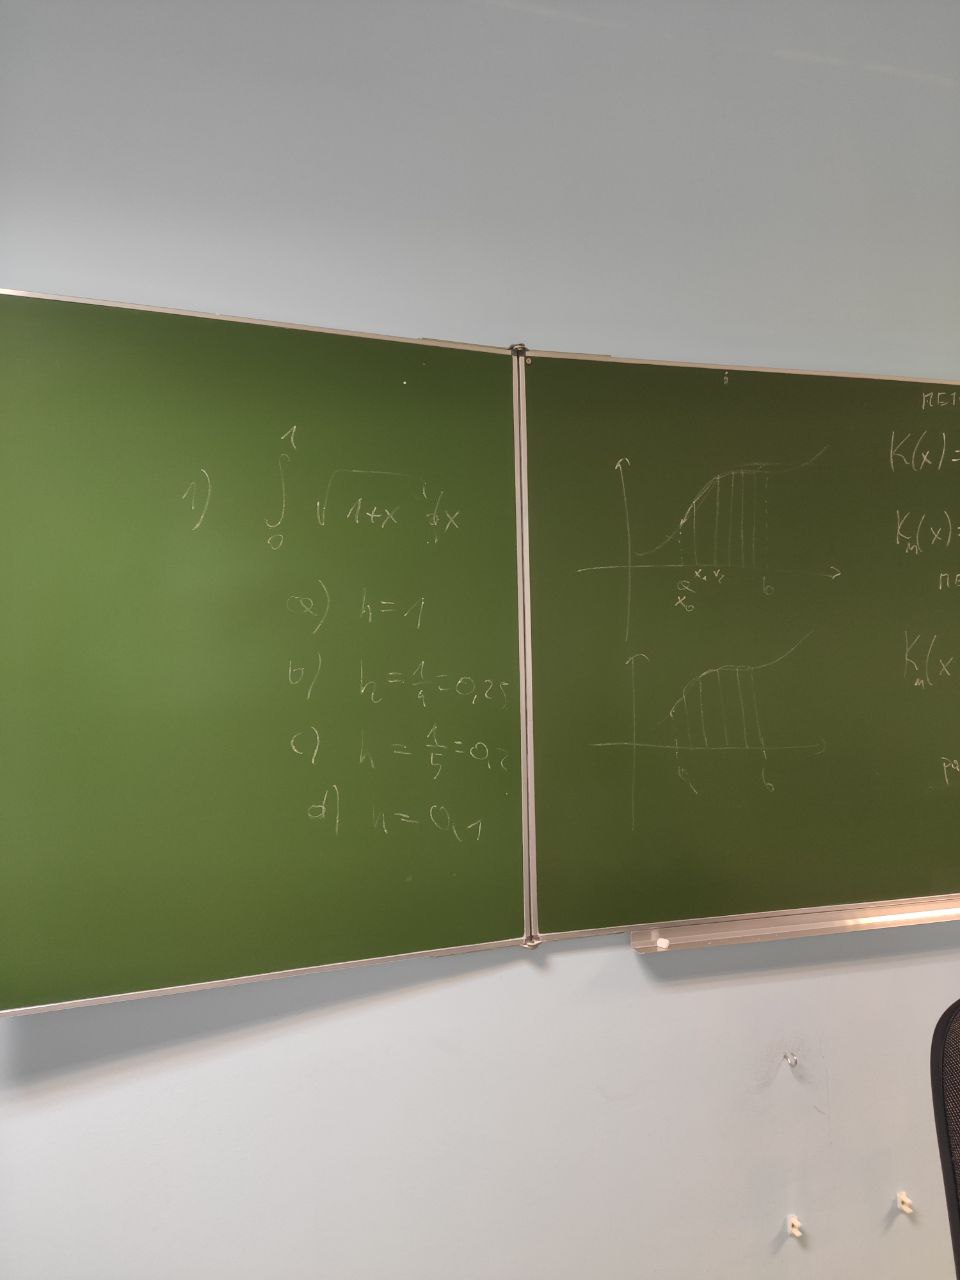 1) ∫₀¹ √(1+x) dx
a) h = 1
b) h = 1/4 = 0,25
c) h = 1/5 = 0,2
d) h = 0,1
a x₁ x₂ b
x₀
a b
K(x) =
Kₘ(x) =
Kₘ(x